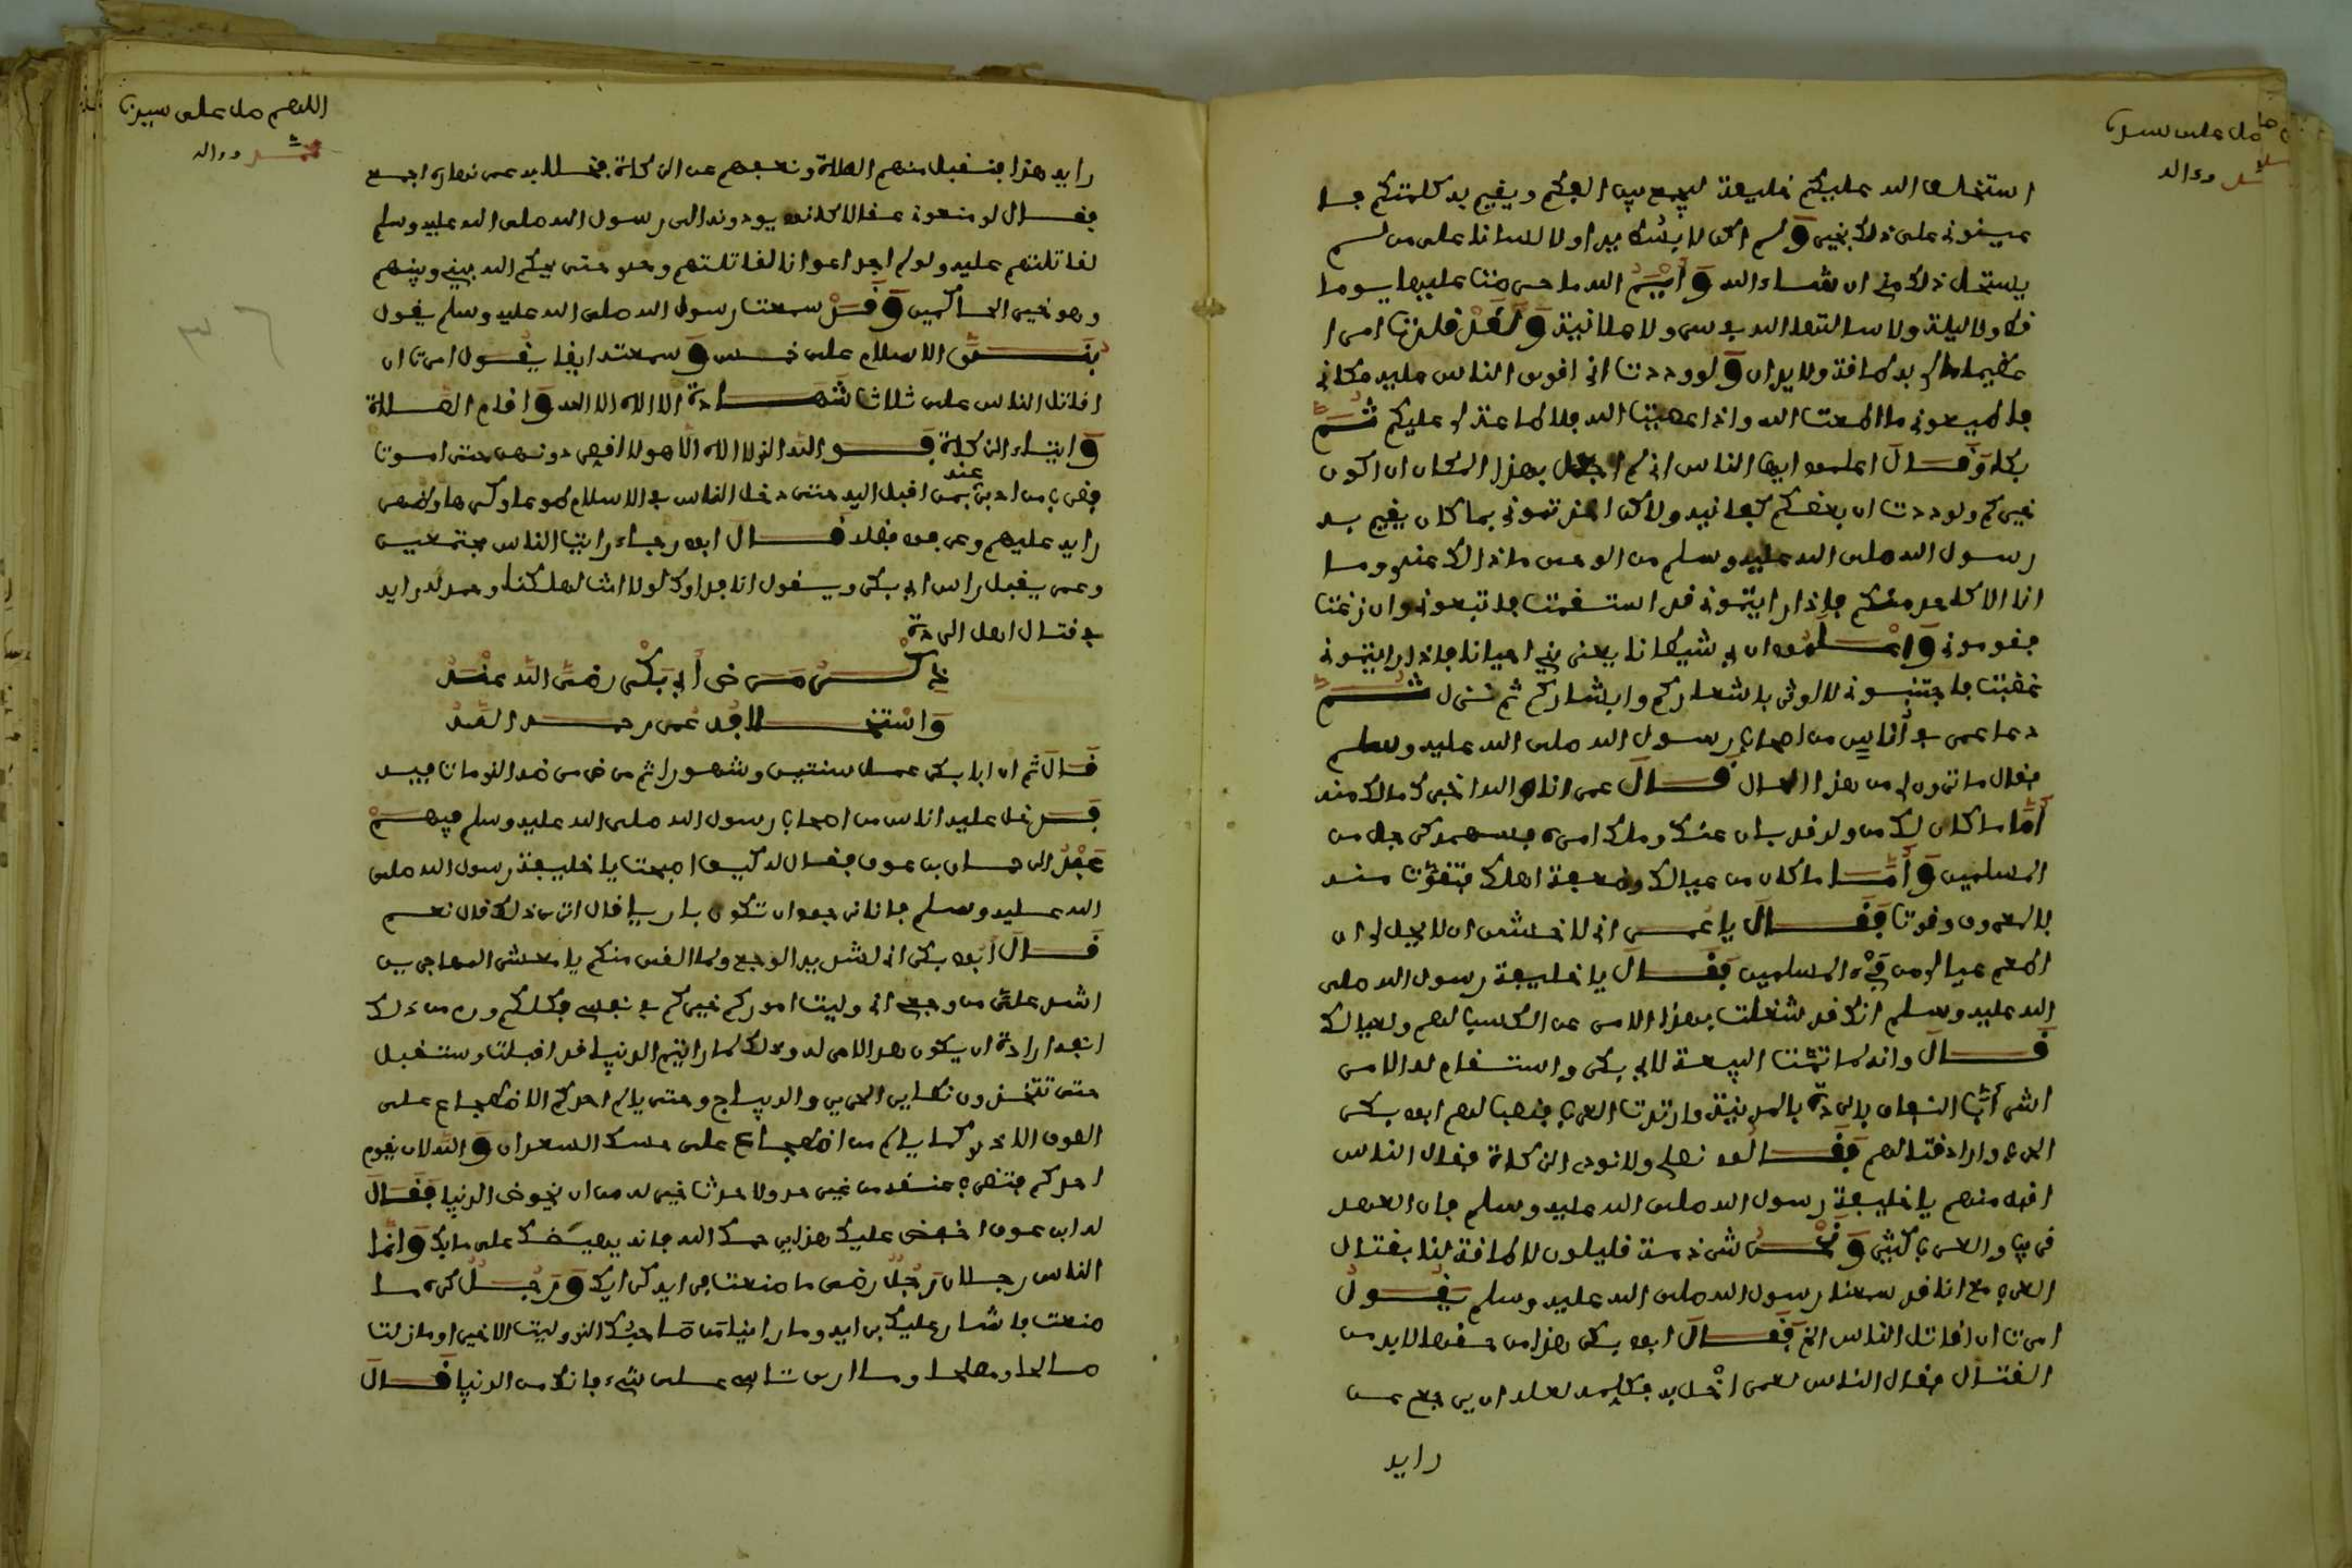 صل على سيدنا
محمد وءاله
استخلف الله عليكم خليفة ليجمع به الفتكم ويقيم به كلمتكم فا
عينوني على ذلك بخير ولم اكن لابسط يدا ولا لسانا على من لم
يستحل ذلك مني ان شاء الله وايم الله ما حرصت عليها يوما
قط ولا ليلة ولا سالتها الله في سر ولا علانية ولقد قلدت امرا
عظيما مالي به طاقة ولا يدان ولوددت اني اقوى الناس عليه مكاني
فاطيعوني ما اطعت الله واذا عصيت الله فلا طاعة لي عليكم ثم
بكا وقال اعلموا ايها الناس اني لم اجعل بهذا المكان ان اكون
خيركم ولوددت ان بعضكم كفانيه ولاكن اخذتموني بما كان يقيم به
رسول الله صلى الله عليه وسلم من الوحي ماذالك عندي وما
انا الا كاحدكم فاذا رايتموني قد استقمت فاتبعوني وان زغت
فقوموني واعلموا ان لي شيطانا يعتريني احيانا فاذا رايتموني
غضبت فاجتنبوني لا اوثر باشعاركم وابشاركم ثم نزل ثم
دعا عمر في اناس من اصحاب رسول الله صلى الله عليه وسلم
فقال ما ترون لي من هذا المال فقال عمر انا والله اخبرك مالك منه
اما ما كان لك من ولد قد بان عنك وملك امره فسهمه كرجل من
المسلمين واما ما كان من عيالك وضعفة اهلك فتقوت منه
بالمعروف وقوت فقال يا عمر اني لاخشى ان لا يحل لي ان
اطعم عيالي من فيء المسلمين فقال يا خليفة رسول الله صلى
الله عليه وسلم انك قد شغلت بهذا الامر عن الكسب لهم ولعيالك
قال وانه لما تمت البيعة لابي بكر واستقام له الامر
اشراب النفاق بالمدينة وارتدت العرب فنصب لهم ابو بكر
الحرب واراد قتالهم فقالوا نصلي ولا نودي الزكاة فقال الناس
اقبل منهم يا خليفة رسول الله صلى الله عليه وسلم فان العهد
قريب والعرب كثير ونحن شرذمة قليلون لا طاقة لنا بقتال
العرب مع انا قد سمعنا رسول الله صلى الله عليه وسلم يقول
امرت ان اقاتل الناس الخ فقال ابو بكر هذا من حقها لا بد من
القتال فقال الناس لعمر اخل به فكلمه لعله ان يرجع عن
رايه
اللهم صل على سيدنا
محمد وءاله
رايه هذا فيقبل منهم الصلاة ونعفيهم عن الزكاة فخلا به عمر نهاره اجمع
فقال لو منعوني عقالا كانوا يودونه الى رسول الله صلى الله عليه وسلم
لقاتلتهم عليه ولو لم اجد اعوانا لقاتلتهم وحدي حتى يحكم الله بيني وبينهم
وهو خير الحاكمين وقد سمعت رسول الله صلى الله عليه وسلم يقول
بني الاسلام على خمس وسمعته ايضا يقول امرت ان
اقاتل الناس على ثلاث شهادة الا اله الا الله واقام الصلاة
وايتاء الزكاة فو الله الذي لا اله الا هو لا اقصر دونهن حتى اموت
فضرب من ادبر بمن اقبل اليه حتى دخل الناس في الاسلام طوعا وكرها وظهر
رايه عليهم وعرفوا فضله قال ابو رجاء رايت الناس مجتمعين
وعمر يقبل راس ابي بكر ويقول انا فداوك لولا انت لهلكنا وحمد له رايه
في قتال اهل الردة
ذكر مرض ابي بكر رضي الله عنه
واستخلافه عمر رحمه الله
قال ثم ان ابا بكر عمل سنتين وشهورا ثم مرض مرضه الذي مات فيه
فدخل عليه اناس من اصحاب رسول الله صلى الله عليه وسلم فيهم
عبد الرحمان بن عوف فقال له كيف اصبحت يا خليفة رسول الله صلى
الله عليه وسلم فاني ارجو ان تكون باريا قال اترى ذلك قال نعم
قال ابو بكر اني لشديد الوجع ولما القى منكم يا معشر المهاجرين
اشد علي من وجعي اني وليت اموركم خيركم في نفسي فكلكم ورم من ذلك
انفه ارادة ان يكون هذا الامر له وذلك لما رايتم الدنيا قد اقبلت وستقبل
حتى تتخذون نضاير الحرير والديباج وحتى يالم احدكم الاضطجاع على
الصوف الاذربي كما يالم من اضطجاع على حسك السعدان والله لان يقوم
احدكم فتضرب عنقه من غير حد ولا حدث خير له من ان يخوض الدنيا فقال
له ابن عوف اخفض عليك هذا يرحمك الله فانه يهيضك على ما بك وانما
الناس رجلان رجل رضي ما صنعت فرايه كرايك ورجل كره ما
صنعت فاشار عليك برايه وما راينا من صاحبك الذي وليت الا خيرا وما زلت
صالحا ومصلحا وما اراك تاسى على شيء فاتك من الدنيا قال